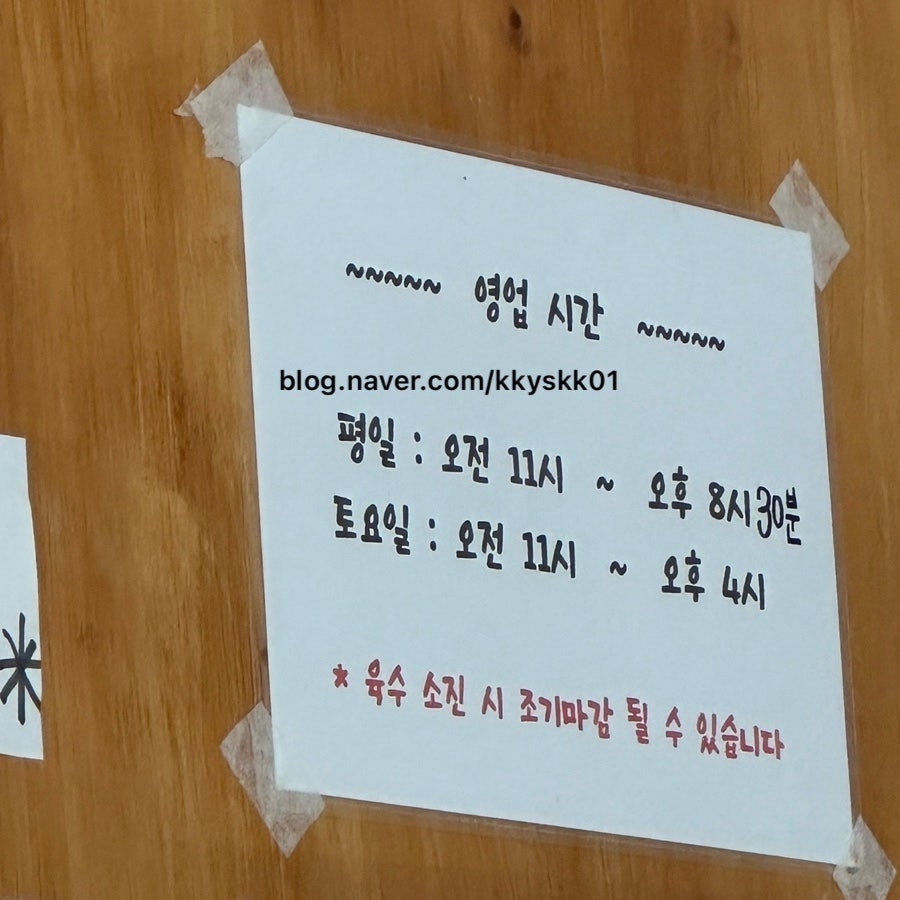 ~~~~~ 영업 시간 ~~~~~
blog.naver.com/kkyskk01
평일 : 오전 11시 ~ 오후 8시30분
토요일 : 오전 11시 ~ 오후 4시
* 육수 소진 시 조기마감 될 수 있습니다